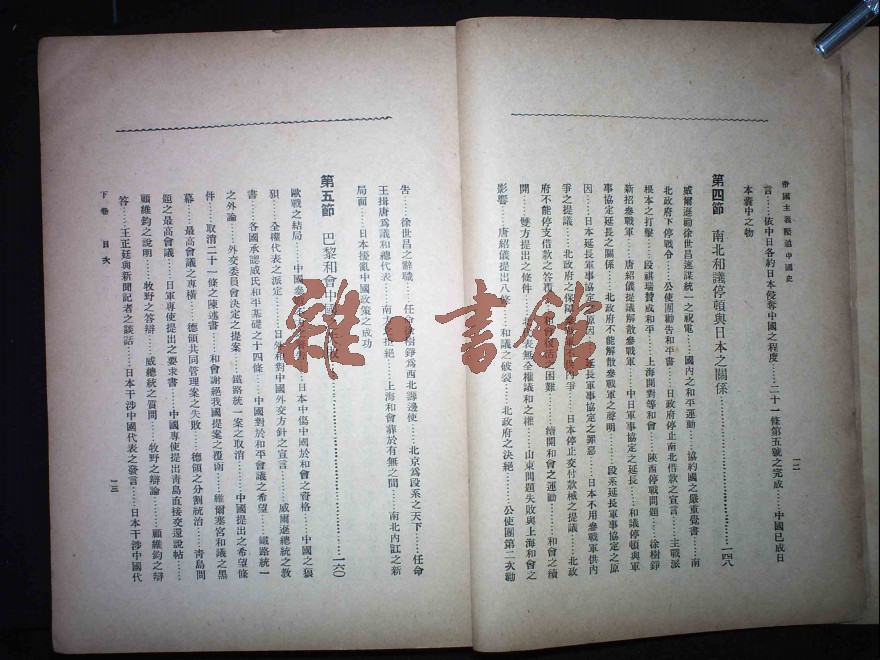 帝國主義壓迫中國史
一二
言……依中日各約日本侵奪中國之程度……二十一條第五號之完成……中國已成日
本囊中之物
第四節 南北和議停頓與日本之關係……一四八
威爾遜勸徐世昌速謀統一之祝電……國內之和平運動……協約國之嚴重覺書……南
北政府下停戰令……公使團勸告和平書……日政府停止南北借款之宣言……主戰派
根本之打擊……段祺瑞贊成和平……上海開對等和會……陝西停戰問題……徐樹錚
新招參戰軍……唐紹儀提議解散參戰軍……中日軍事協定之延長……和議停頓與軍
事協定延長之關係……北政府不能解散參戰軍之聲明……段系延長軍事協定之原
因……日本延長軍事協定原因……延長軍事協定之罪惡……日本不用參戰軍供內
爭之提議……北政府之保障……內爭……日本停止交付款械之提議……北政
府不能停支借款之答覆……復活之困難……續開和會之運動……和會之續
開……雙方提出之條件……表無全權議和之權……山東問題失敗與上海和會之
影響……唐紹儀提出八條……和議之破裂……北政府之決絕……公使團第二次勸
告……徐世昌之辭職……任……樹錚爲西北籌邊使……北京爲段系之天下……任命
王揖唐爲議和總代表……南方……拒絕……上海和會葬於有無之間……南北內訌之新
局面……日本擾亂中國政策之成功
第五節 巴黎和會中國……敗……一六〇
歐戰之結局……中國參……日本中傷中國於和會之資格……中國之狼
狽……全權代表之派定……日……和對中國外交方針之宣言……威爾遜總統之教
書……各國承認威氏和平基礎之十四條……中國對於和平會議之希望……鐵路統一
之外論……外交委員會決定之提案……鐵路統一案之取消……中國提出之希望條
件……取消二十一條之陳述書……和會謝絕我國提案之覆函……維爾塞宮和議之黑
幕……最高會議之專橫……德領共同管理案之失敗……德領之分割統治……青島問
題之最高會議……日軍專使提出之要求書……中國專使提出青島直接交還說帖……
顧維鈞之說明……牧野之答辯……威總統之質問……牧野之辯論……顧維鈞之辯
答……王正廷與新聞記者之談話……日本干涉中國代表之發言……日本干涉中國代
下卷 目次
一三
雜·書館